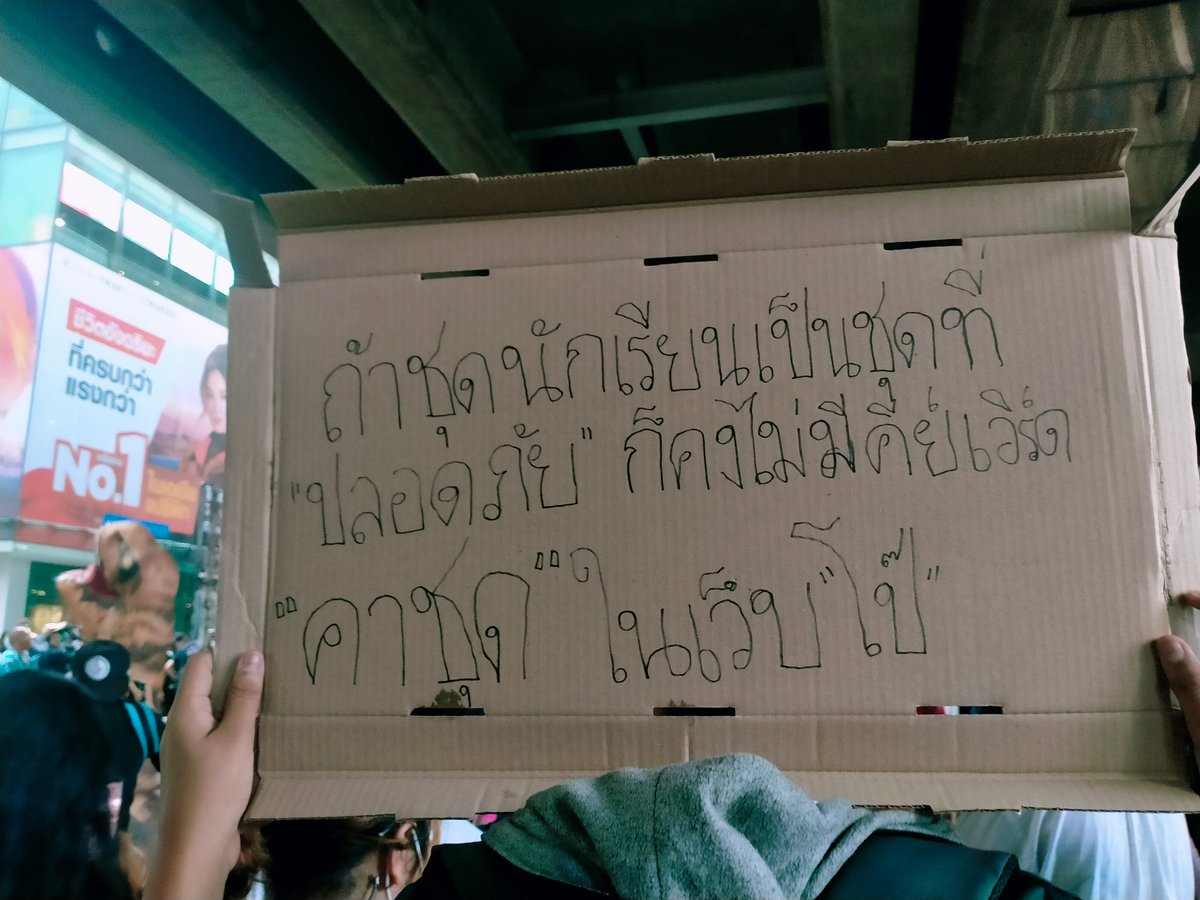 ถ้าชุดนักเรียนเป็นชุดที่
"ปลอดภัย" ก็คงไม่มีคีย์เวิร์ด
"คาชุด" ในเว็บ"โป๊"
ที่ครบกว่า
แรงกว่า
No.1